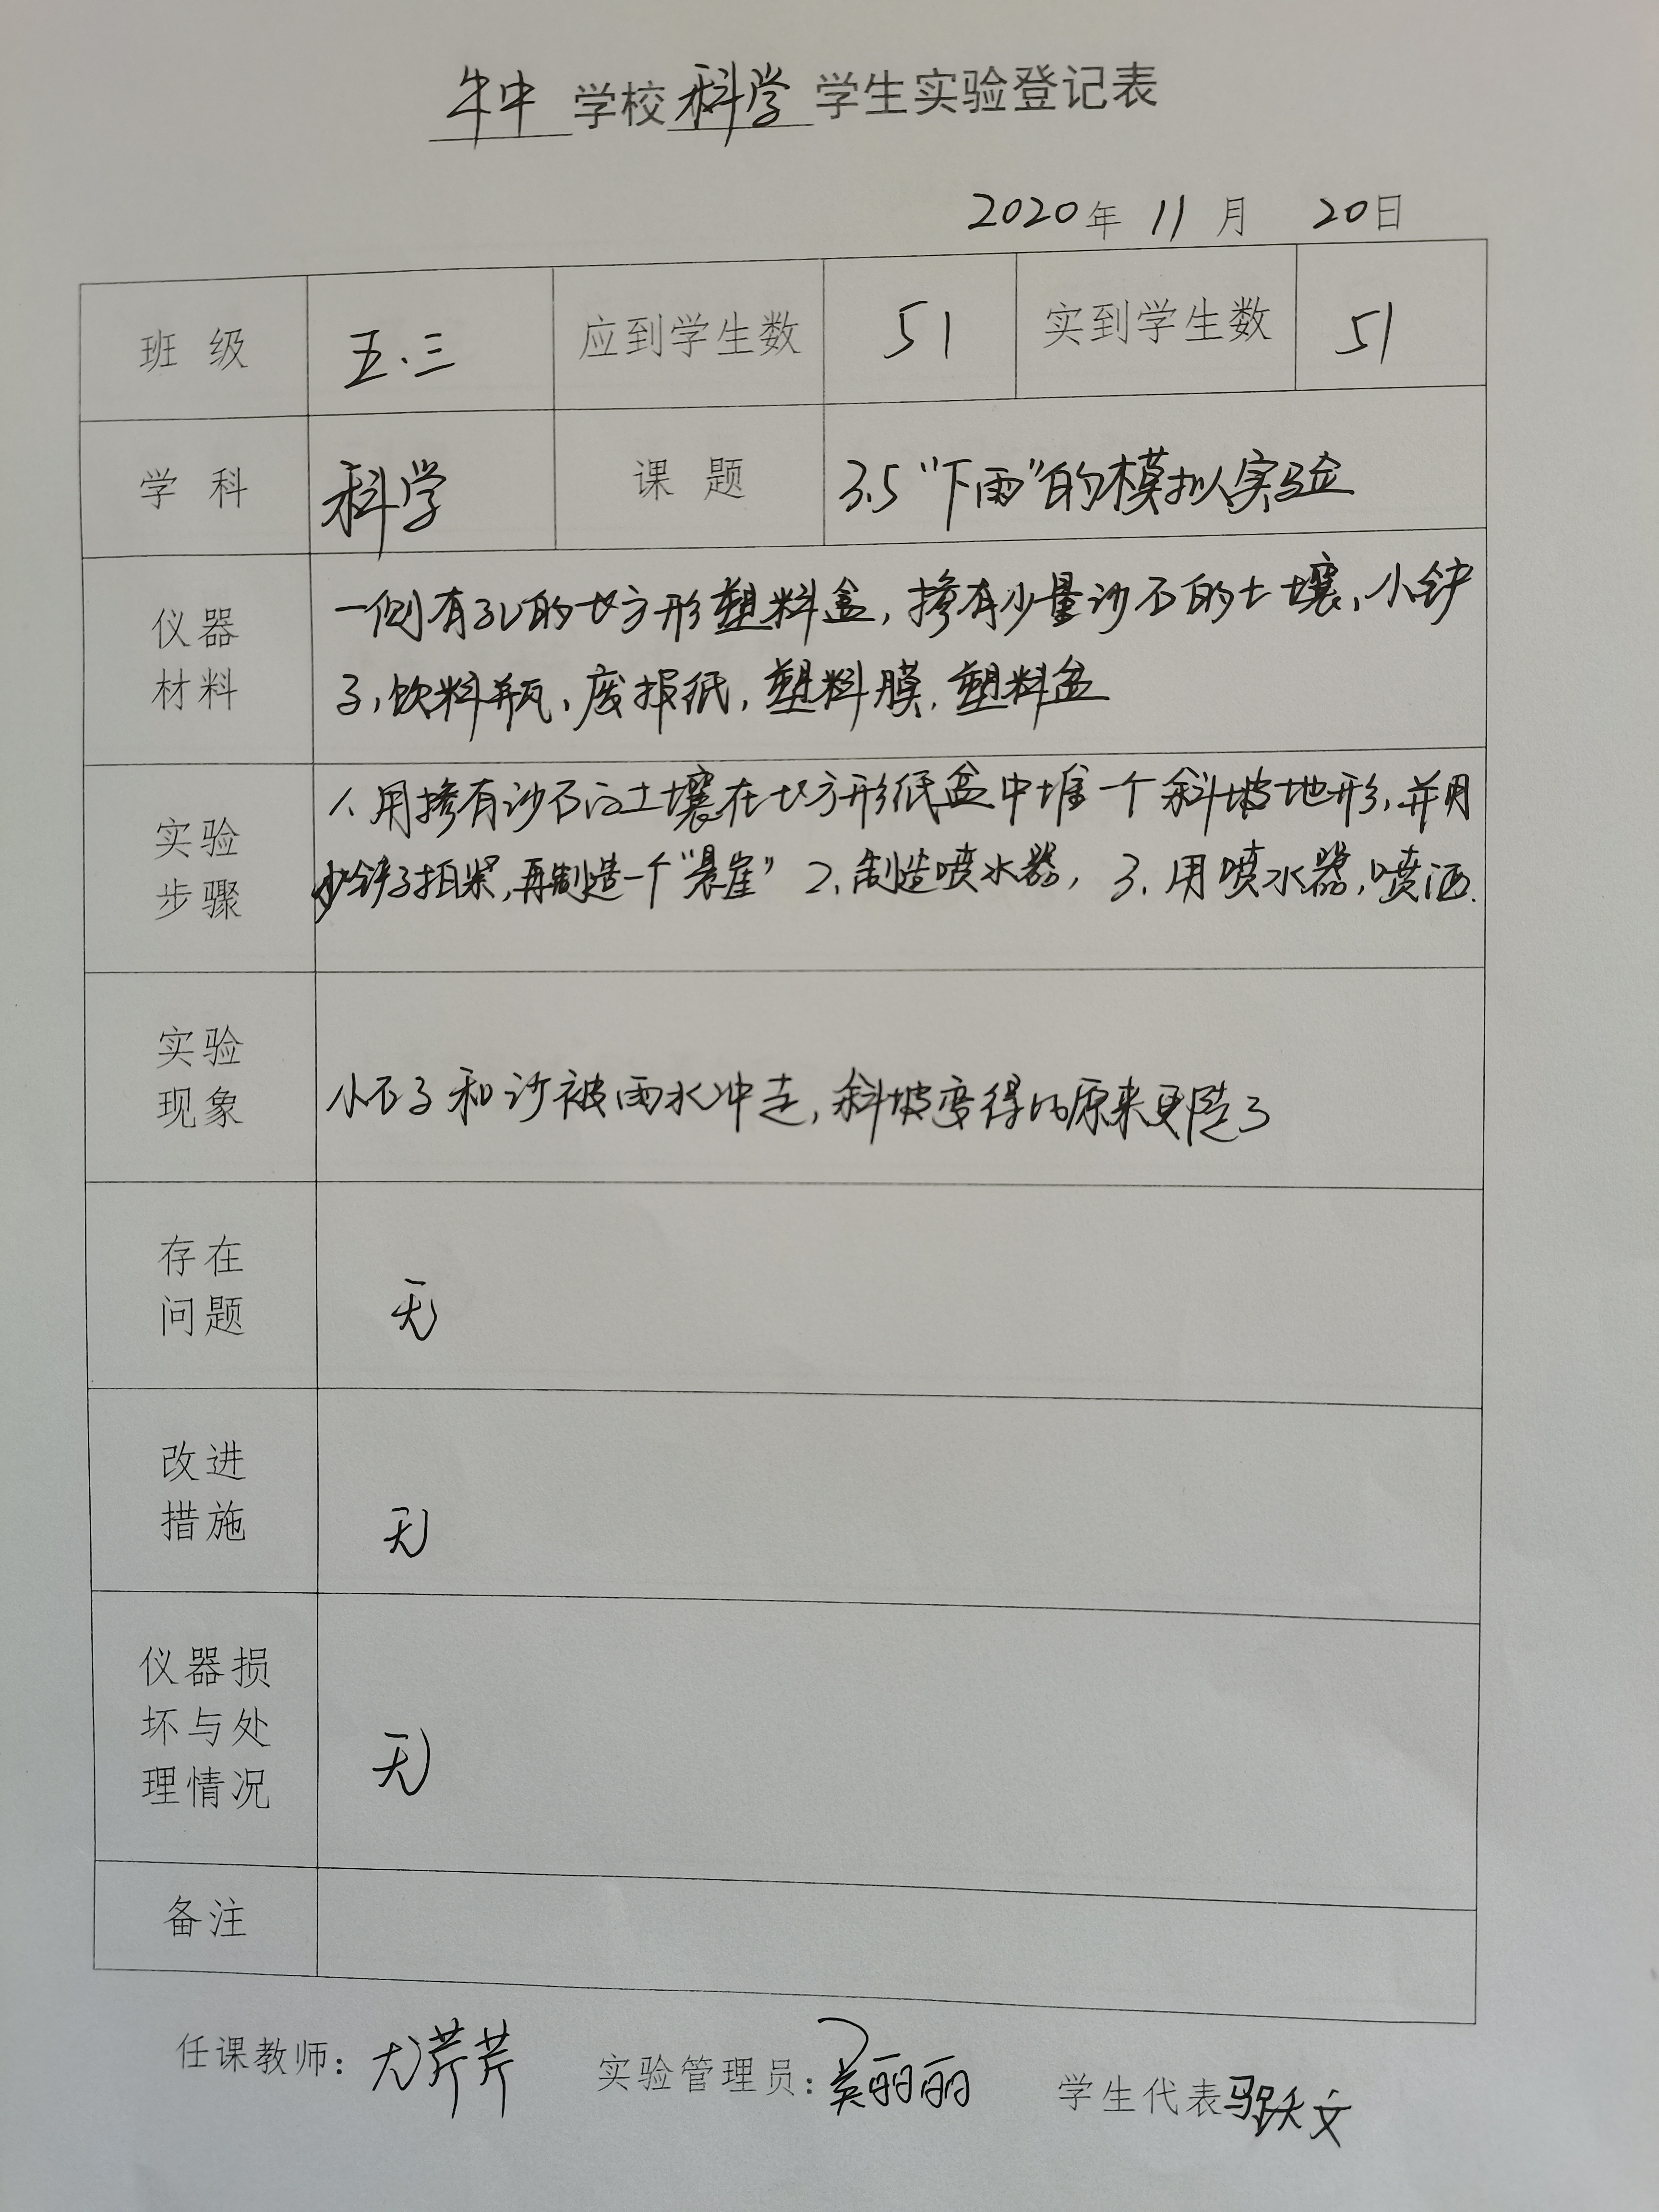 牛中学校科学学生实验登记表
2020年 11月 20日
班 级 五.三 应到学生数 51 实到学生数 51
学 科 科学 课 题 3.5“下雨”的模拟实验
仪器
材料
一侧有孔的长方形塑料盒,掺有少量沙石的土壤、小铲
子,饮料瓶、废报纸,塑料膜.塑料盆
实验
步骤
1、用掺有沙石的土壤在长方形纸盒中堆一个斜坡地形,并用
小铲子拍紧,再制造一个“悬崖” 2.制造喷水器, 3.用喷水器,喷洒.
实验
现象
小石子和沙被雨水冲走,斜坡变得比原来更陡了
存在
问题
无
改进
措施
无
仪器损
坏与处
理情况
无
备注
任课教师:尤芹芹 实验管理员:吴丽丽 学生代表马跃文